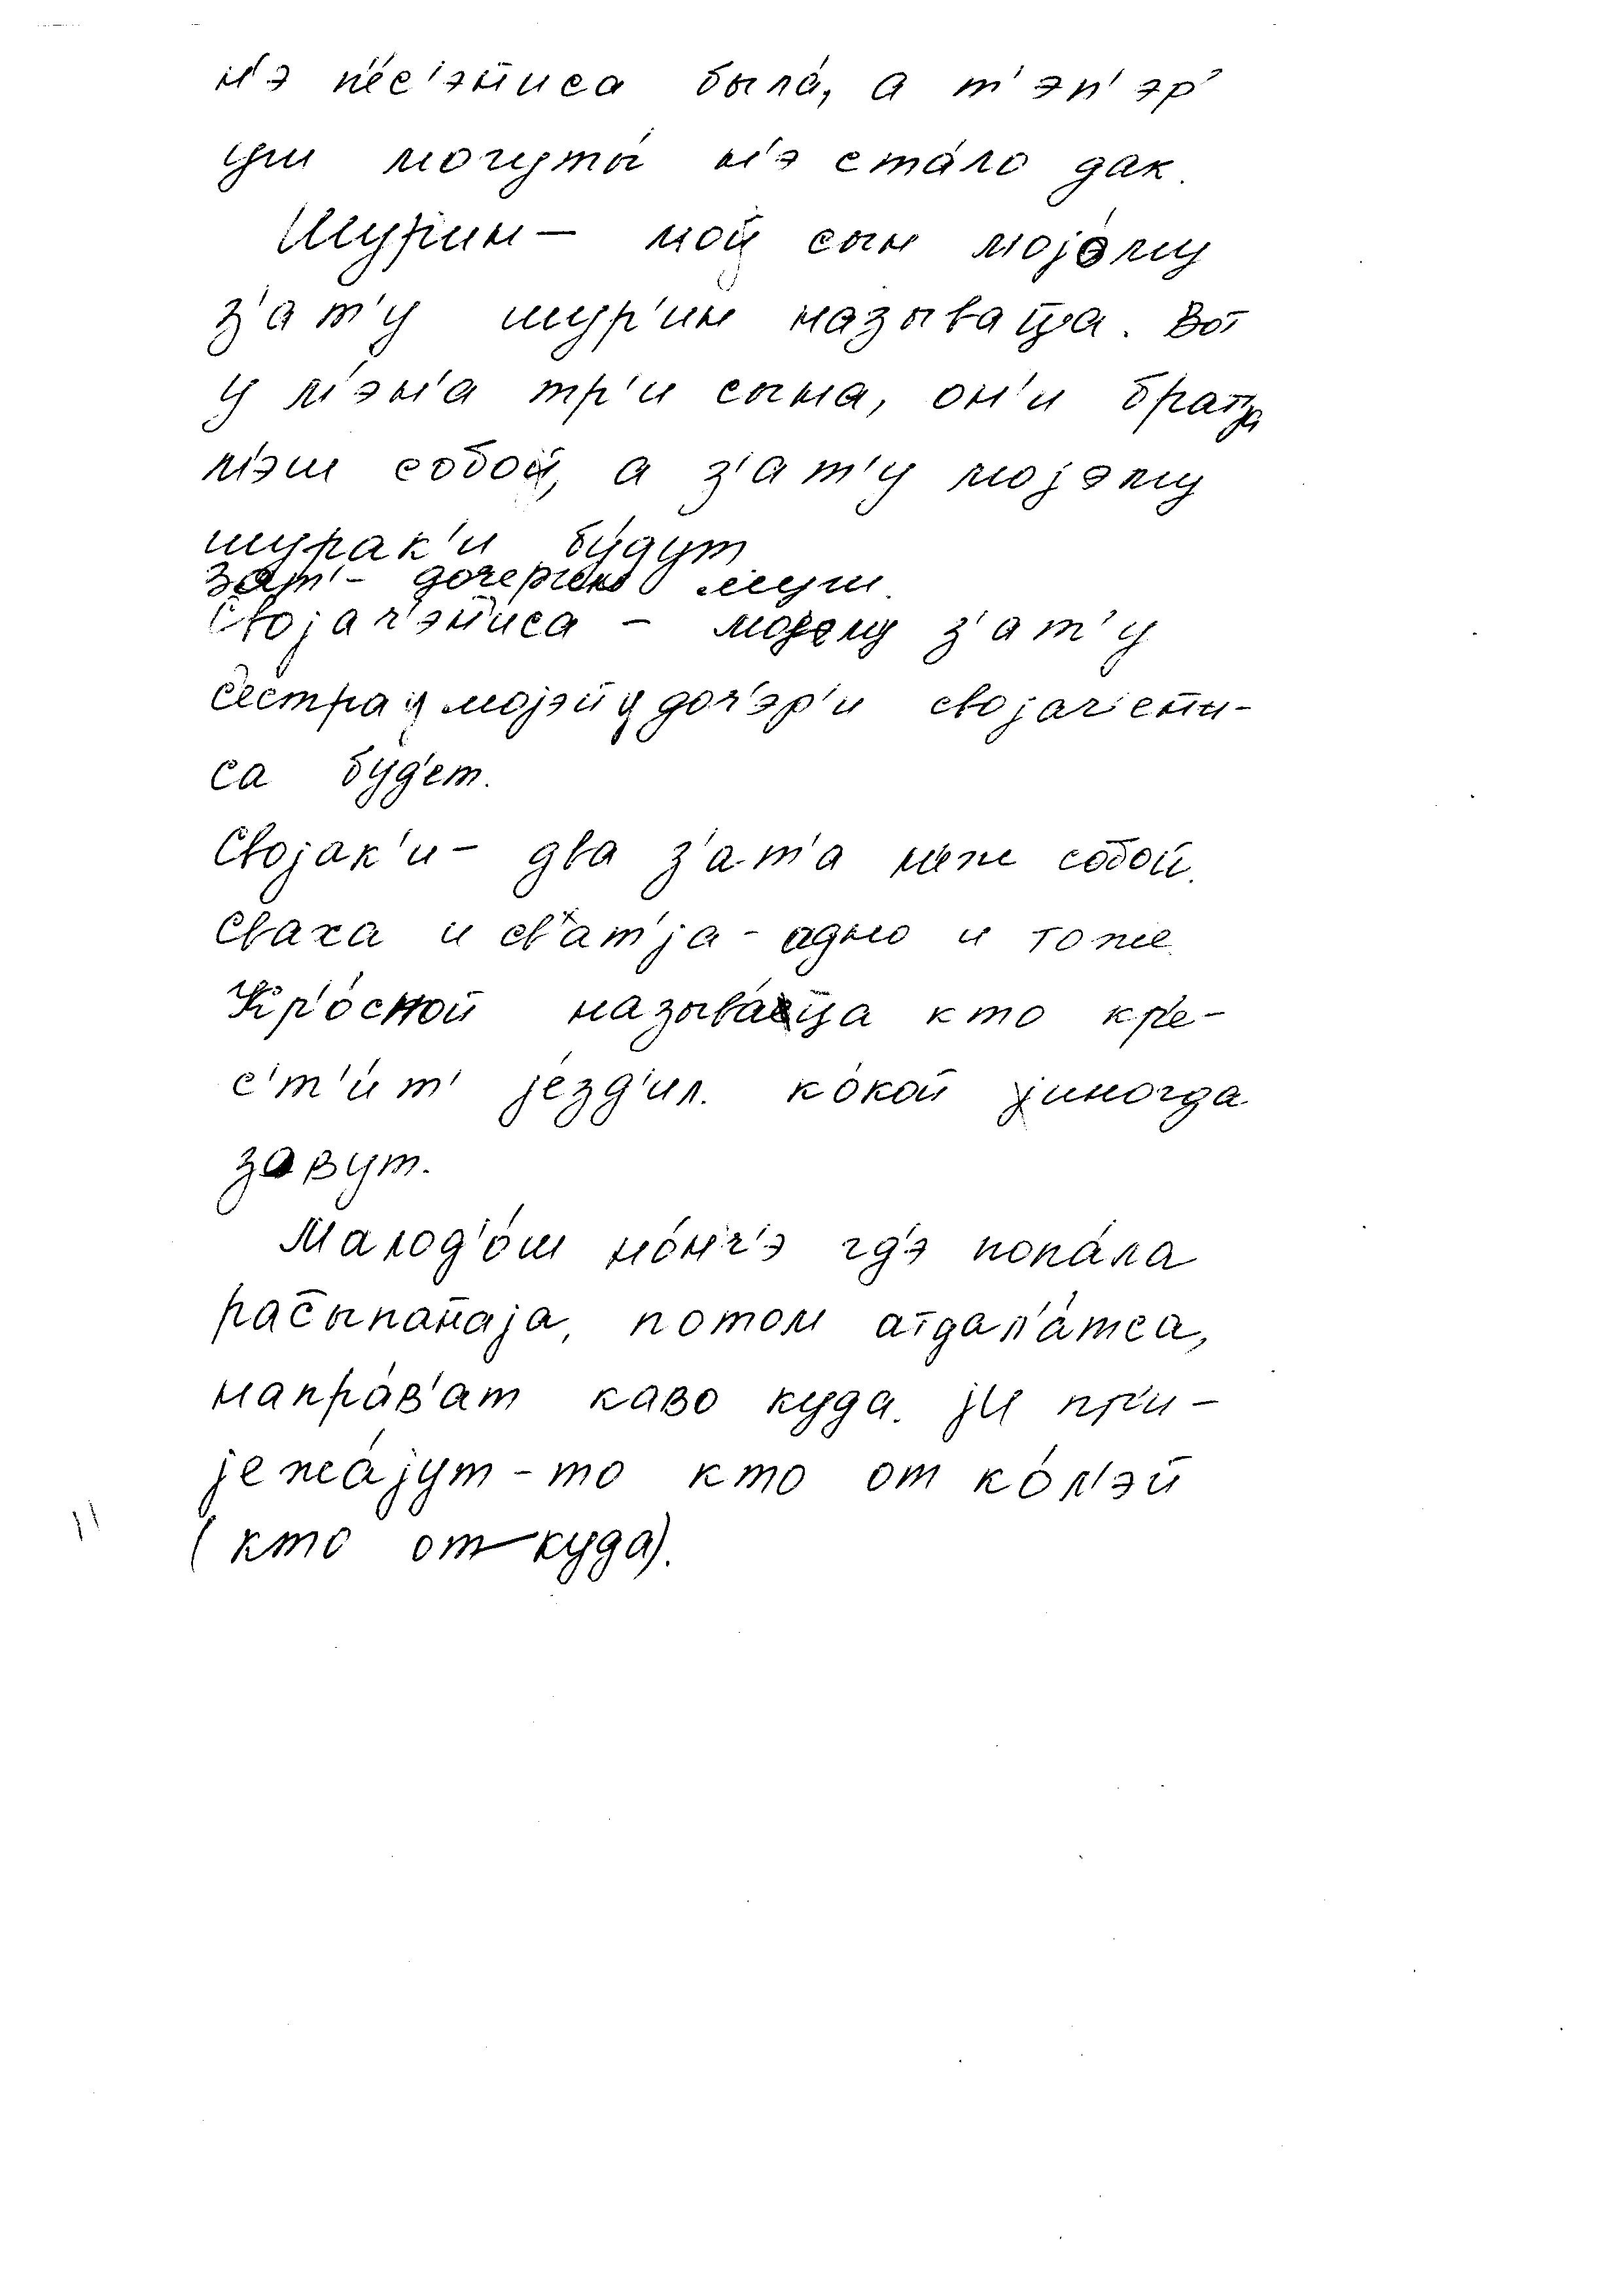 н'э п'е́с'эн̄иса была́, а т'эп'эр'
уш могуты́ н'э ста́ло дак.
Шурин — мой сын моjэ́му
з'ат'у шур'ин называц̄а. Вот
у м'эн'а тр'и сына, он'и брат'jа
м'эш собой, а з'ат'у моjэму
шурак'и бу́дут
зат' - дочернко муш.
Своjач'эн̄иса - моjему з'ат'у
сестра у моjэй у доч'эр'и своjач'ен̄и-
са буд'ет.
Своjак'и - два з'ат'а м'еж собой.
Сваха и св'ат'jа - адно и тоже.
Кр'о́сной называ́ец̄а кто кр'е-
с'т'и́т' jе́зд'ил. ко́кой jиногда
завут.
Малод'о́ш но́нч'э гд'э попа́ла
рас̄ыпан̄аjа, потом атдал'а́тса,
напра́в'ат каво куда. jИ пр'и-
jежа́jут-то кто от ко́л'эй
(кто от куда).